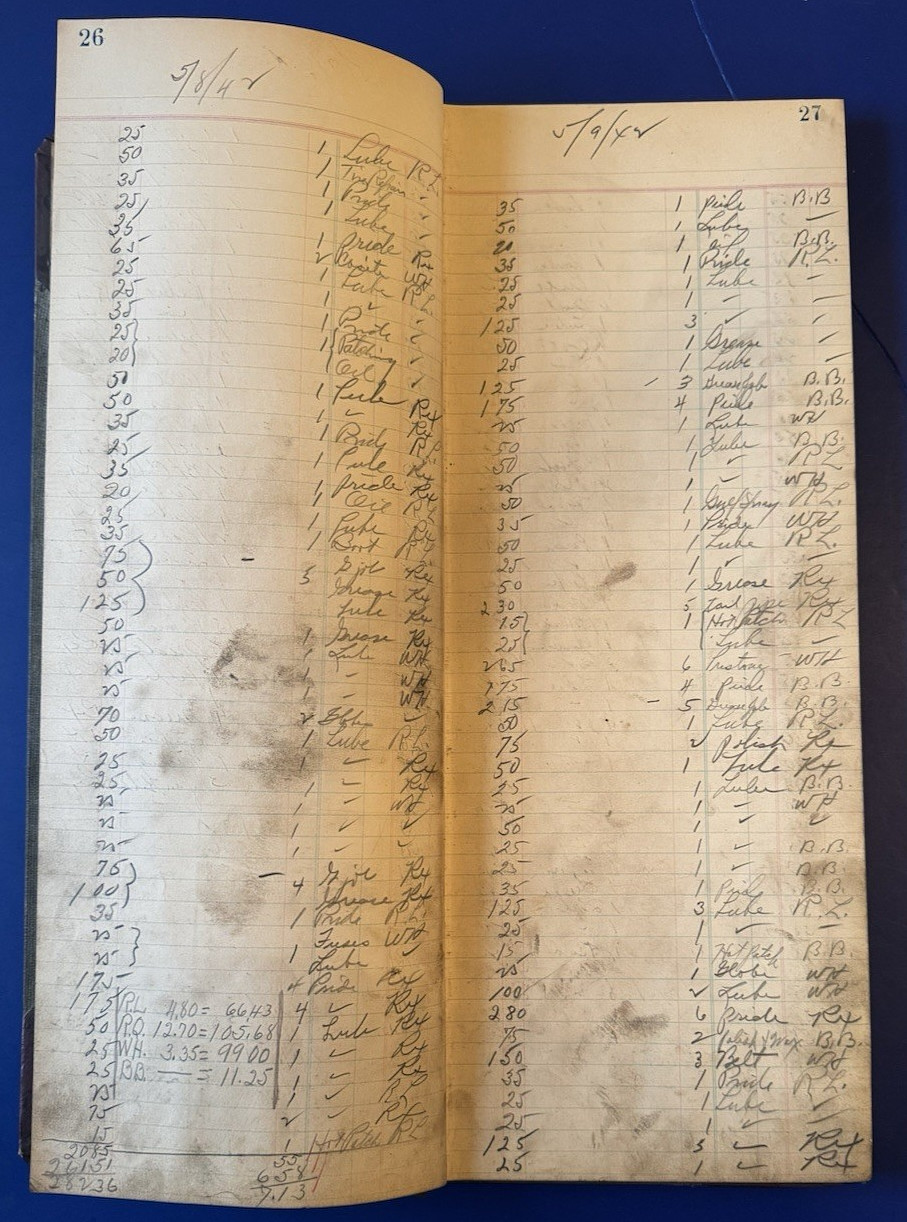 26
5/8/42
25 1 Lube RL
50 1 Tire Repair ✓
35 1 Pride ✓
25 1 Lube ✓
35 1 Pride Rx
65 2 WH
25 1 Lube RL
25 1 ✓ ✓
35 1 Pride ✓
25 1 Patching ✓
20 Oil ✓
50 1 Rx
50 1 ✓ Rx
35 1 Pride
25 1 Rx
35 1 Pride Rx
20 1 Oil RL
25 1 Lube Rx
35 1 Boot RL
75 5 Rx
50 Grease Rx
125 Lube Rx
50 1 Grease Rx
25 1 Lube WH
25 1 " WH
25 1 " WH
70 2 Globe ✓
50 1 Lube RL
25 1 " Rx
25 1 " Rx
25 1 " WH
25 1 ✓ ✓
25 1 " "
75 4 Rx
100 Grease Rx
35 1 Pride RL
25 Fuses WH
25 1 Lube ✓
175 4 Pride Rx
175 4 ✓ Rx
50 1 Lube Rx
25 1 " Rx
25 1 " Rx
25 1 ✓ RL
75 2 " Rx
15 1 Hot Patch RL
RL 4.80 = 66.43
RO. 12.70 = 105.68
WH. 3.35 = 99.00
BB. — = 11.25
2085
26151
28236
55
658
7.13
27
5/9/42
35 1 Pride B.B
50 1 Lube —
20 1 Oil B.B.
35 1 Pride R.L.
25 1 Lube —
25 1 " —
125 3 ✓ —
50 1 Grease —
25 1 Lube —
125 – 3 Grease Job B.B.
175 4 Pride B.B.
25 1 Lube WH
50 1 Lube B.B.
50 1 " RL
25 1 " WH
50 1 Gulf Spray R.L.
35 1 Pride WH
50 1 Lube R.L.
25 1 " —
50 1 Grease Rx
230 5 Tail pipe Rx
15 1 Hot Patch RL
25 Lube —
265 6 WH
175 4 Pride B.B.
215 – 5 Grease Job B.B.
50 1 Lube R.L.
75 2 Polish Rx
50 1 Lube Rx
25 1 Lube B.B.
25 1 " WH
50 1 ✓ ✓
25 1 ✓ B.B.
25 1 ✓ B.B.
35 1 Pride B.B.
125 3 Lube R.L.
25 1 ✓ —
15 1 Hot Patch B.B.
25 1 Globe WH
100 2 Lube WH
280 6 Pride Rx
75 2 Polish & Wax B.B.
150 3 Belt WH
35 1 Pride R.L.
25 1 Lube ✓
25 1 ✓ —
125 3 ✓ Rx
25 1 ✓ Rx